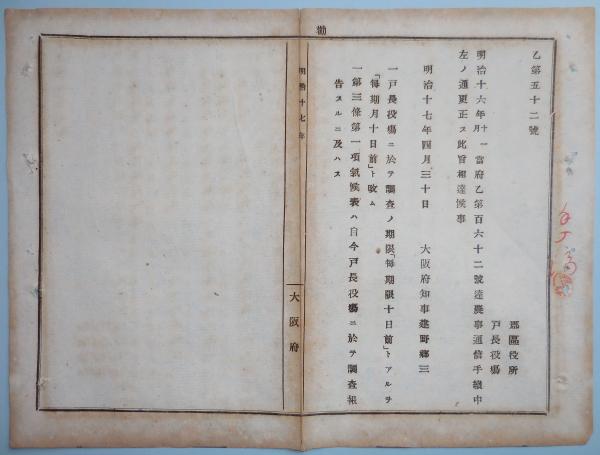 勸
乙第五十二號
郡區役所
戸長役塲
明治十六年十一月當府乙第百六十二號達農事通信手續中
左ノ通更正ス此旨相達候事
明治十七年四月三十日　大阪府知事建野鄕三
一戸長役塲ニ於テ調査ノ期限「每期限十日前」トアルヲ
「每期月十日前」ト改ム
一第三條第一項氣候表ハ自今戸長役塲ニ於テ調査報
告スルニ及ハス
明治十七年
大阪府